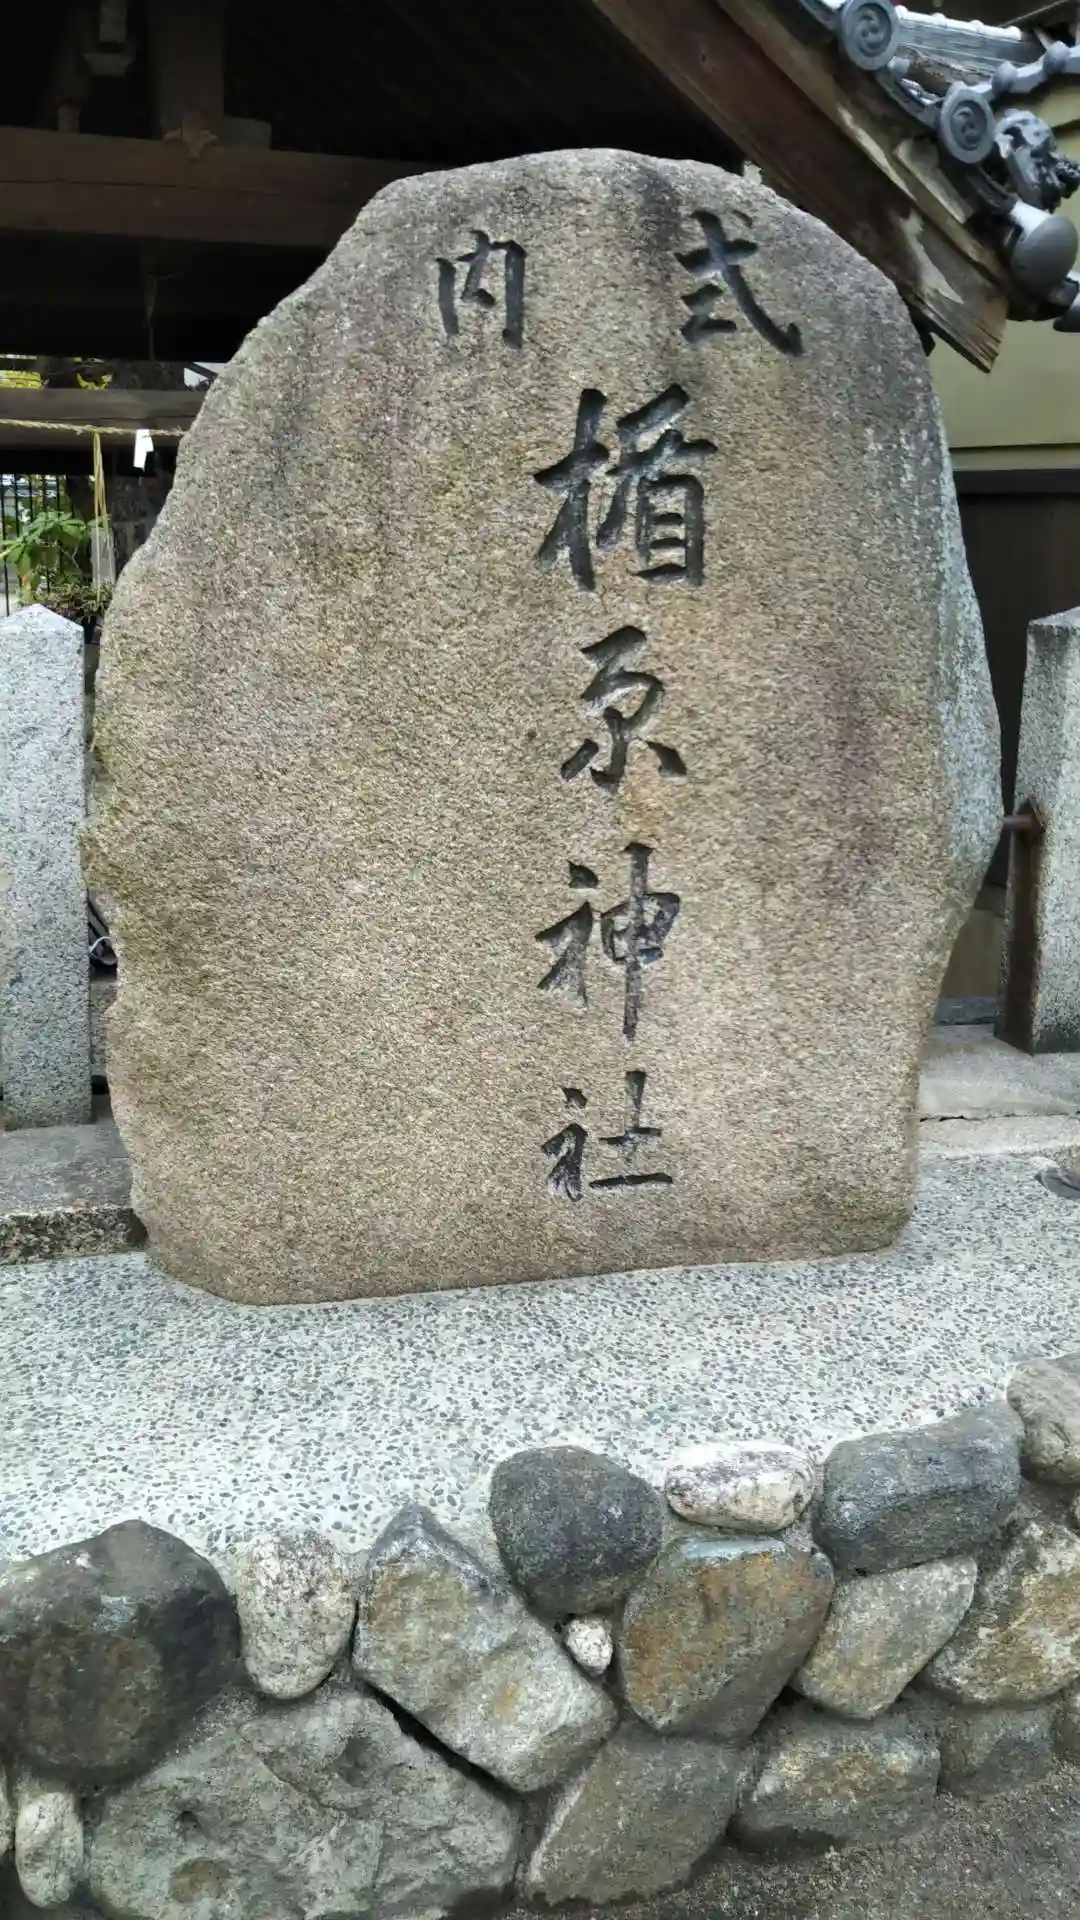 式内
楯原神社